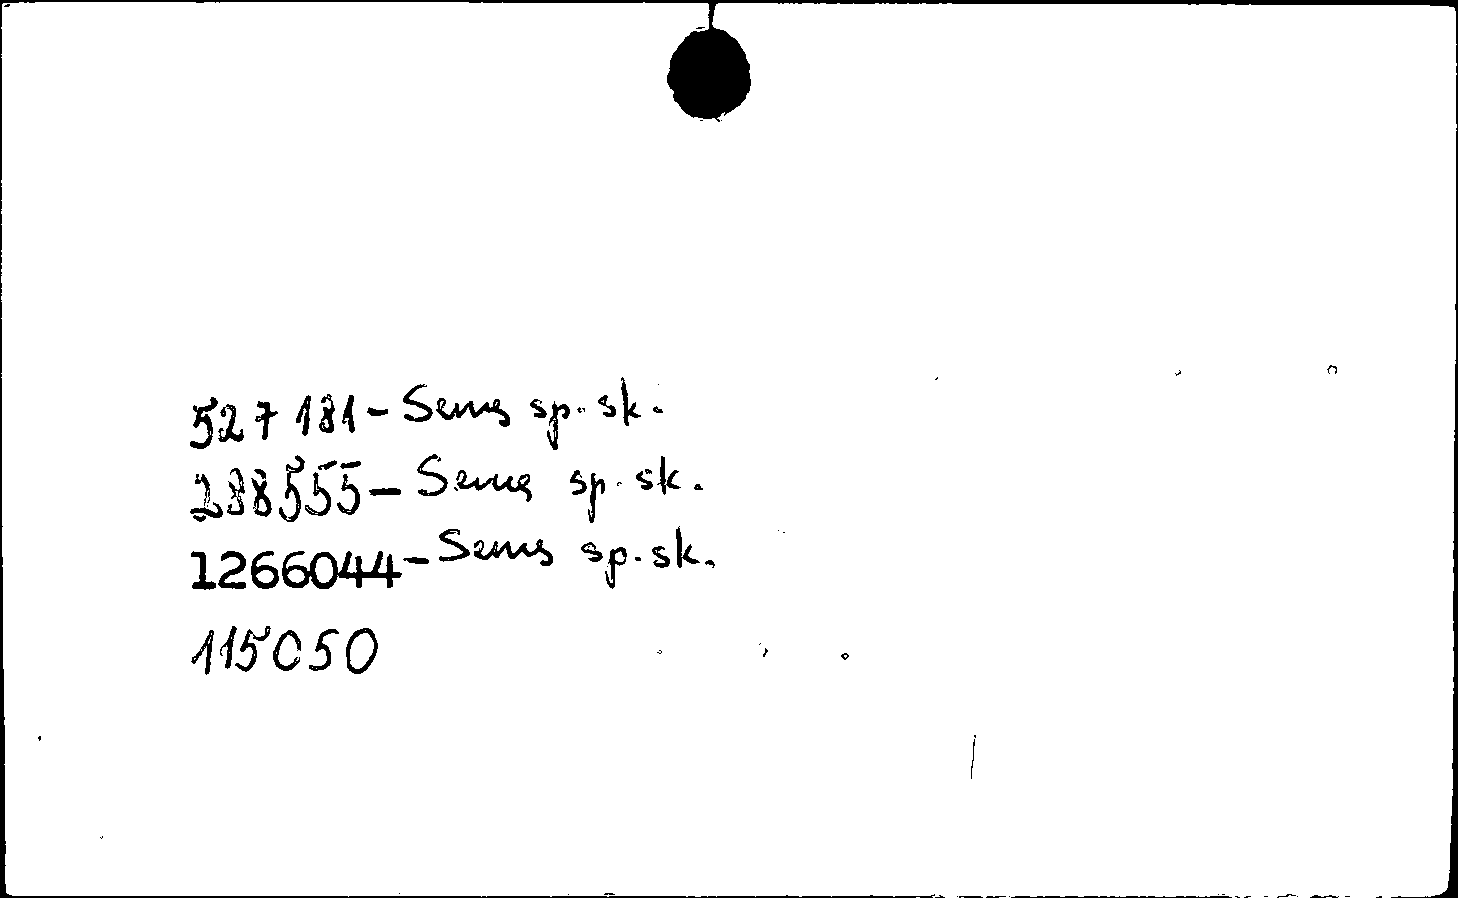 527 181 – Senų sp. sk.
288555 – Senų sp. sk.
1266044 – Senų sp. sk.
115050